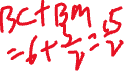 BC+BM
=6+3/2=15/2